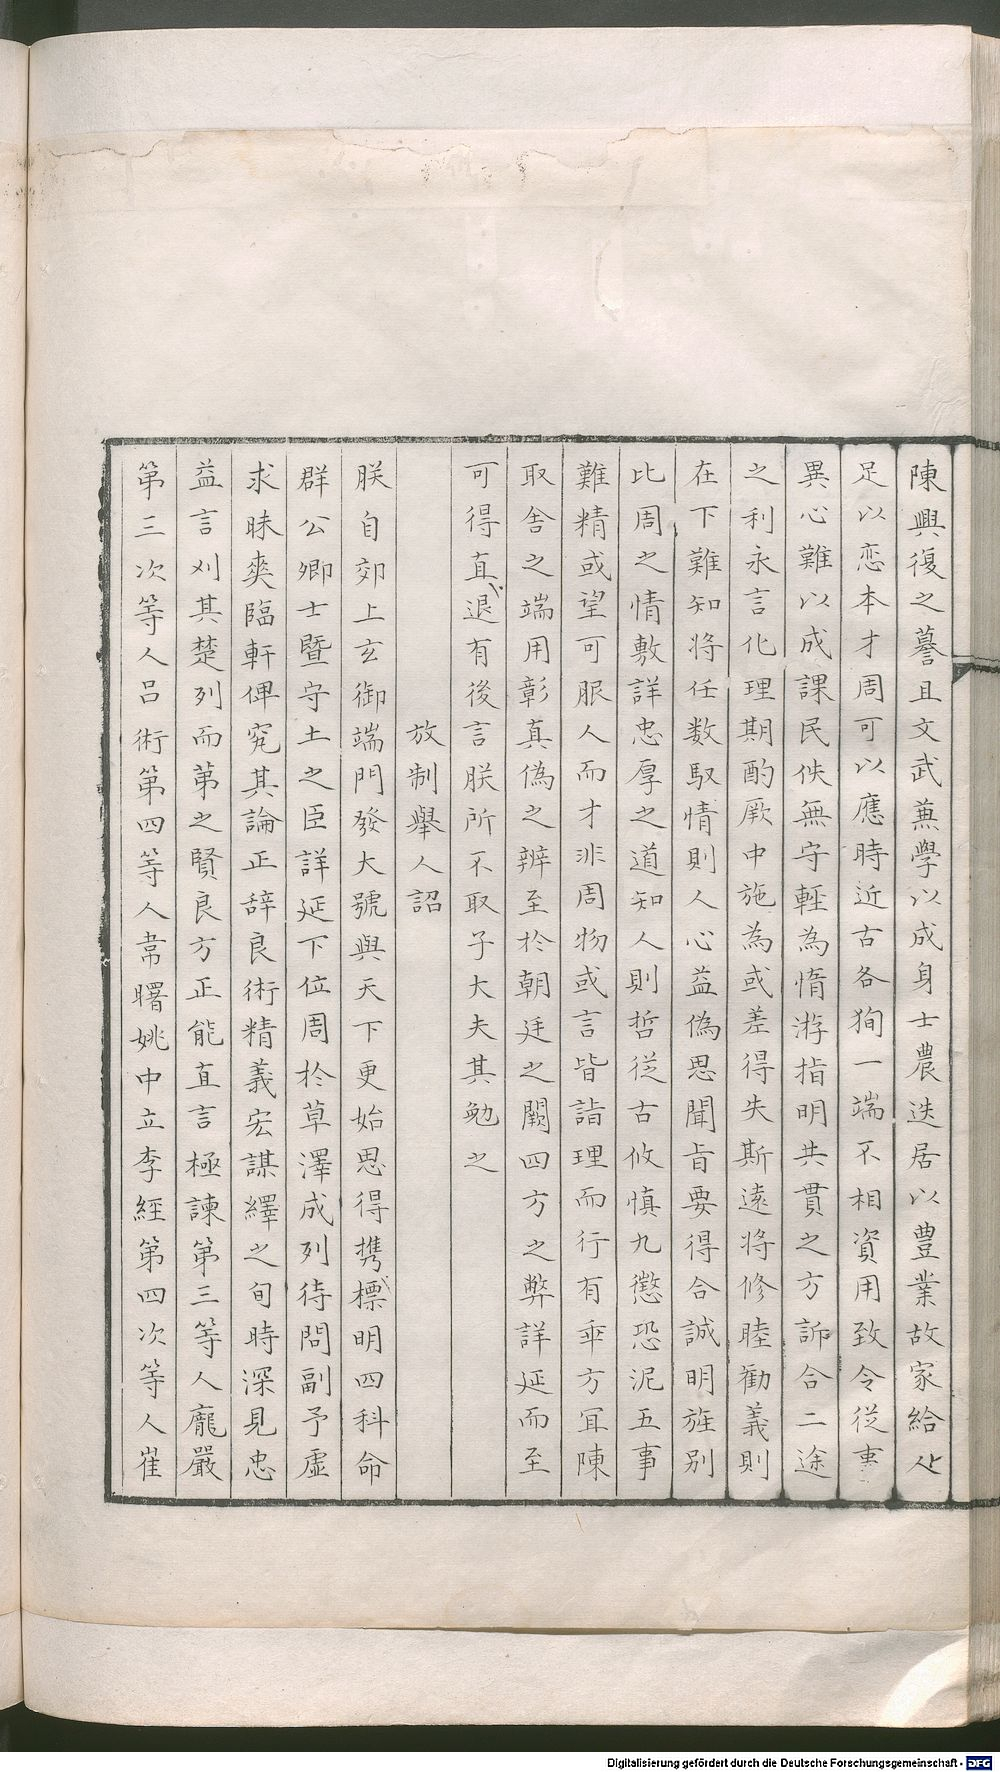 陳興復之蓦且文武蕪學以成身士農迭居以豐業故家給人
足以恋本才周可以應時近古各狥一端不相資用致令従事
異心難以成課民佚無守輕為惰游指明共貫之方訴合二途
之利永言化理期酌厥中施為或差得失斯遠将修睦勸義則
在下難知将任数馭情則人心益偽思聞旨要得合誠明旌别
比周之情敷詳忠厚之道知人則哲従古攸慎九懲恐泥五事
難精或望可服人而才非周物或言皆詣理而行有乖方冝陳
取舍之端用彰真偽之辨至於朝廷之闕四方之弊詳延而至
可得直退有後言朕所不取子大夫其勉之
放制舉人詔
朕自郊上玄御端門發大號與天下更始思得携標明四科命
群公卿士暨守土之臣詳延下位周於草澤成列待問副予虚
求昧爽臨軒俾究其論正辞良術精義宏謀繹之旬時深見忠
益言刈其楚列而苐之賢良方正能直言極諫第三等人龐嚴
第三次等人吕術第四等人韋曙姚中立李經第四次等人崔
Digitalisierung gefördert durch die Deutsche Forschungsgemeinschaft - DFG